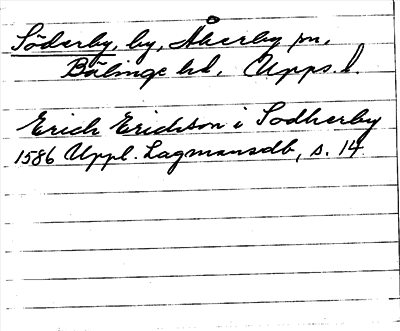 Söderby, by, Åkerby sn,
Bälinge hd. Upps. l.
Erich Erichson i Sodherby
1586 Uppl. Lagmansdb, s. 14